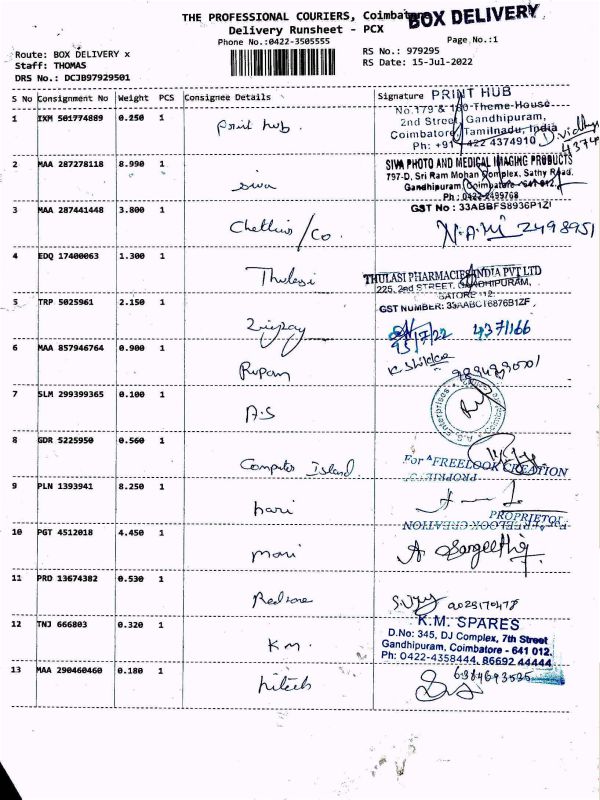 THE PROFESSIONAL COURIERS, Coimbatore
BOX DELIVERY
Delivery Runsheet - PCX
Phone No.:0422-3505555
Page No.:1
Route: BOX DELIVERY x
RS No.: 979295
Staff: THOMAS
RS Date: 15-Jul-2022
DRS No.: DCJB97929501
S No Consignment No Weight PCS Consignee Details Signature
1 IXM 501774889 0.250 1 print hub.
PRINT HUB
No.179 & 180 Theme House
2nd Street, Gandhipuram,
Coimbatore, Tamilnadu, India
Ph: +91 422 4374910
2 MAA 287278118 8.990 1 siva
SIVA PHOTO AND MEDICAL IMAGING PRODUCTS
797-D, Sri Ram Mohan Complex, Sathy Road,
Gandhipuram, Coimbatore - 641 012.
Ph : 0422-2499768
GST No : 33ABBFS8936P1ZI
3 MAA 287441448 3.800 1 /Co. 2498951
4 EDQ 17400063 1.300 1 Thulasi
THULASI PHARMACIES INDIA PVT LTD
225, 2nd STREET, GANDHIPURAM,
GST NUMBER:
5 TRP 5025961 2.150 1
6 MAA 857946764 0.900 1 Rupam
7 SLM 299399365 0.100 1 A.S
A.S. Enterprises
8 GDR 5225950 0.560 1 Computer Island.
For FREELOOK CREATION
9 PLN 1393941 8.250 1 hari
PROPRIETOR
For FREELOOK CREATION
10 PGT 4512018 4.450 1 mari
11 PRD 13674382 0.530 1
12 TNJ 666803 0.320 1 K.M.
K.M. SPARES
D.No: 345, DJ Complex, 7th Street
Gandhipuram, Coimbatore - 641 012.
Ph: 0422-4358444, 86692 44444
13 MAA 290460460 0.180 1 hitech